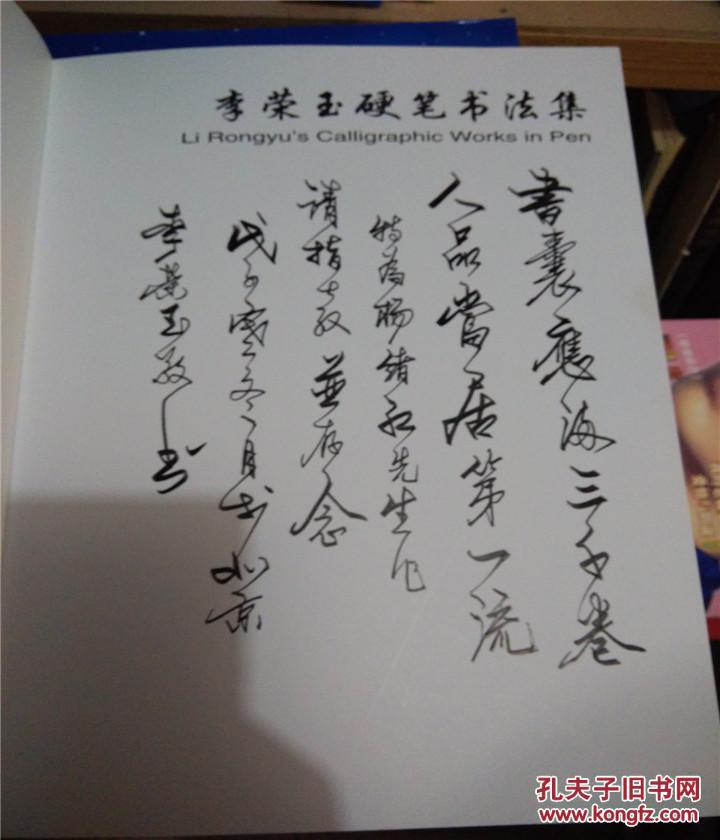 李荣玉硬笔书法集
Li Rongyu's Calligraphic Works in Pen
書囊應满三千卷
人品當居第一流
特为杨先生作
請指教並存念
戊子寒冬月于北京
李荣玉敬书
孔夫子旧书网
kongfz.com